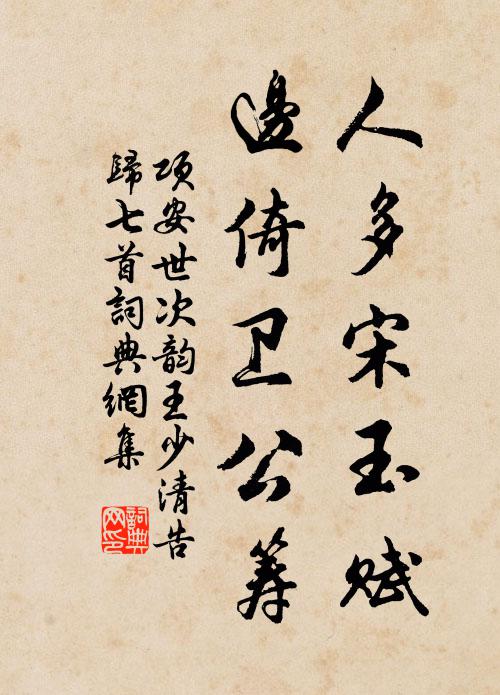 人多宋玉赋
邊倚卫公筹
項安世次韵王少清告
歸七首詞典網集
詞典网印